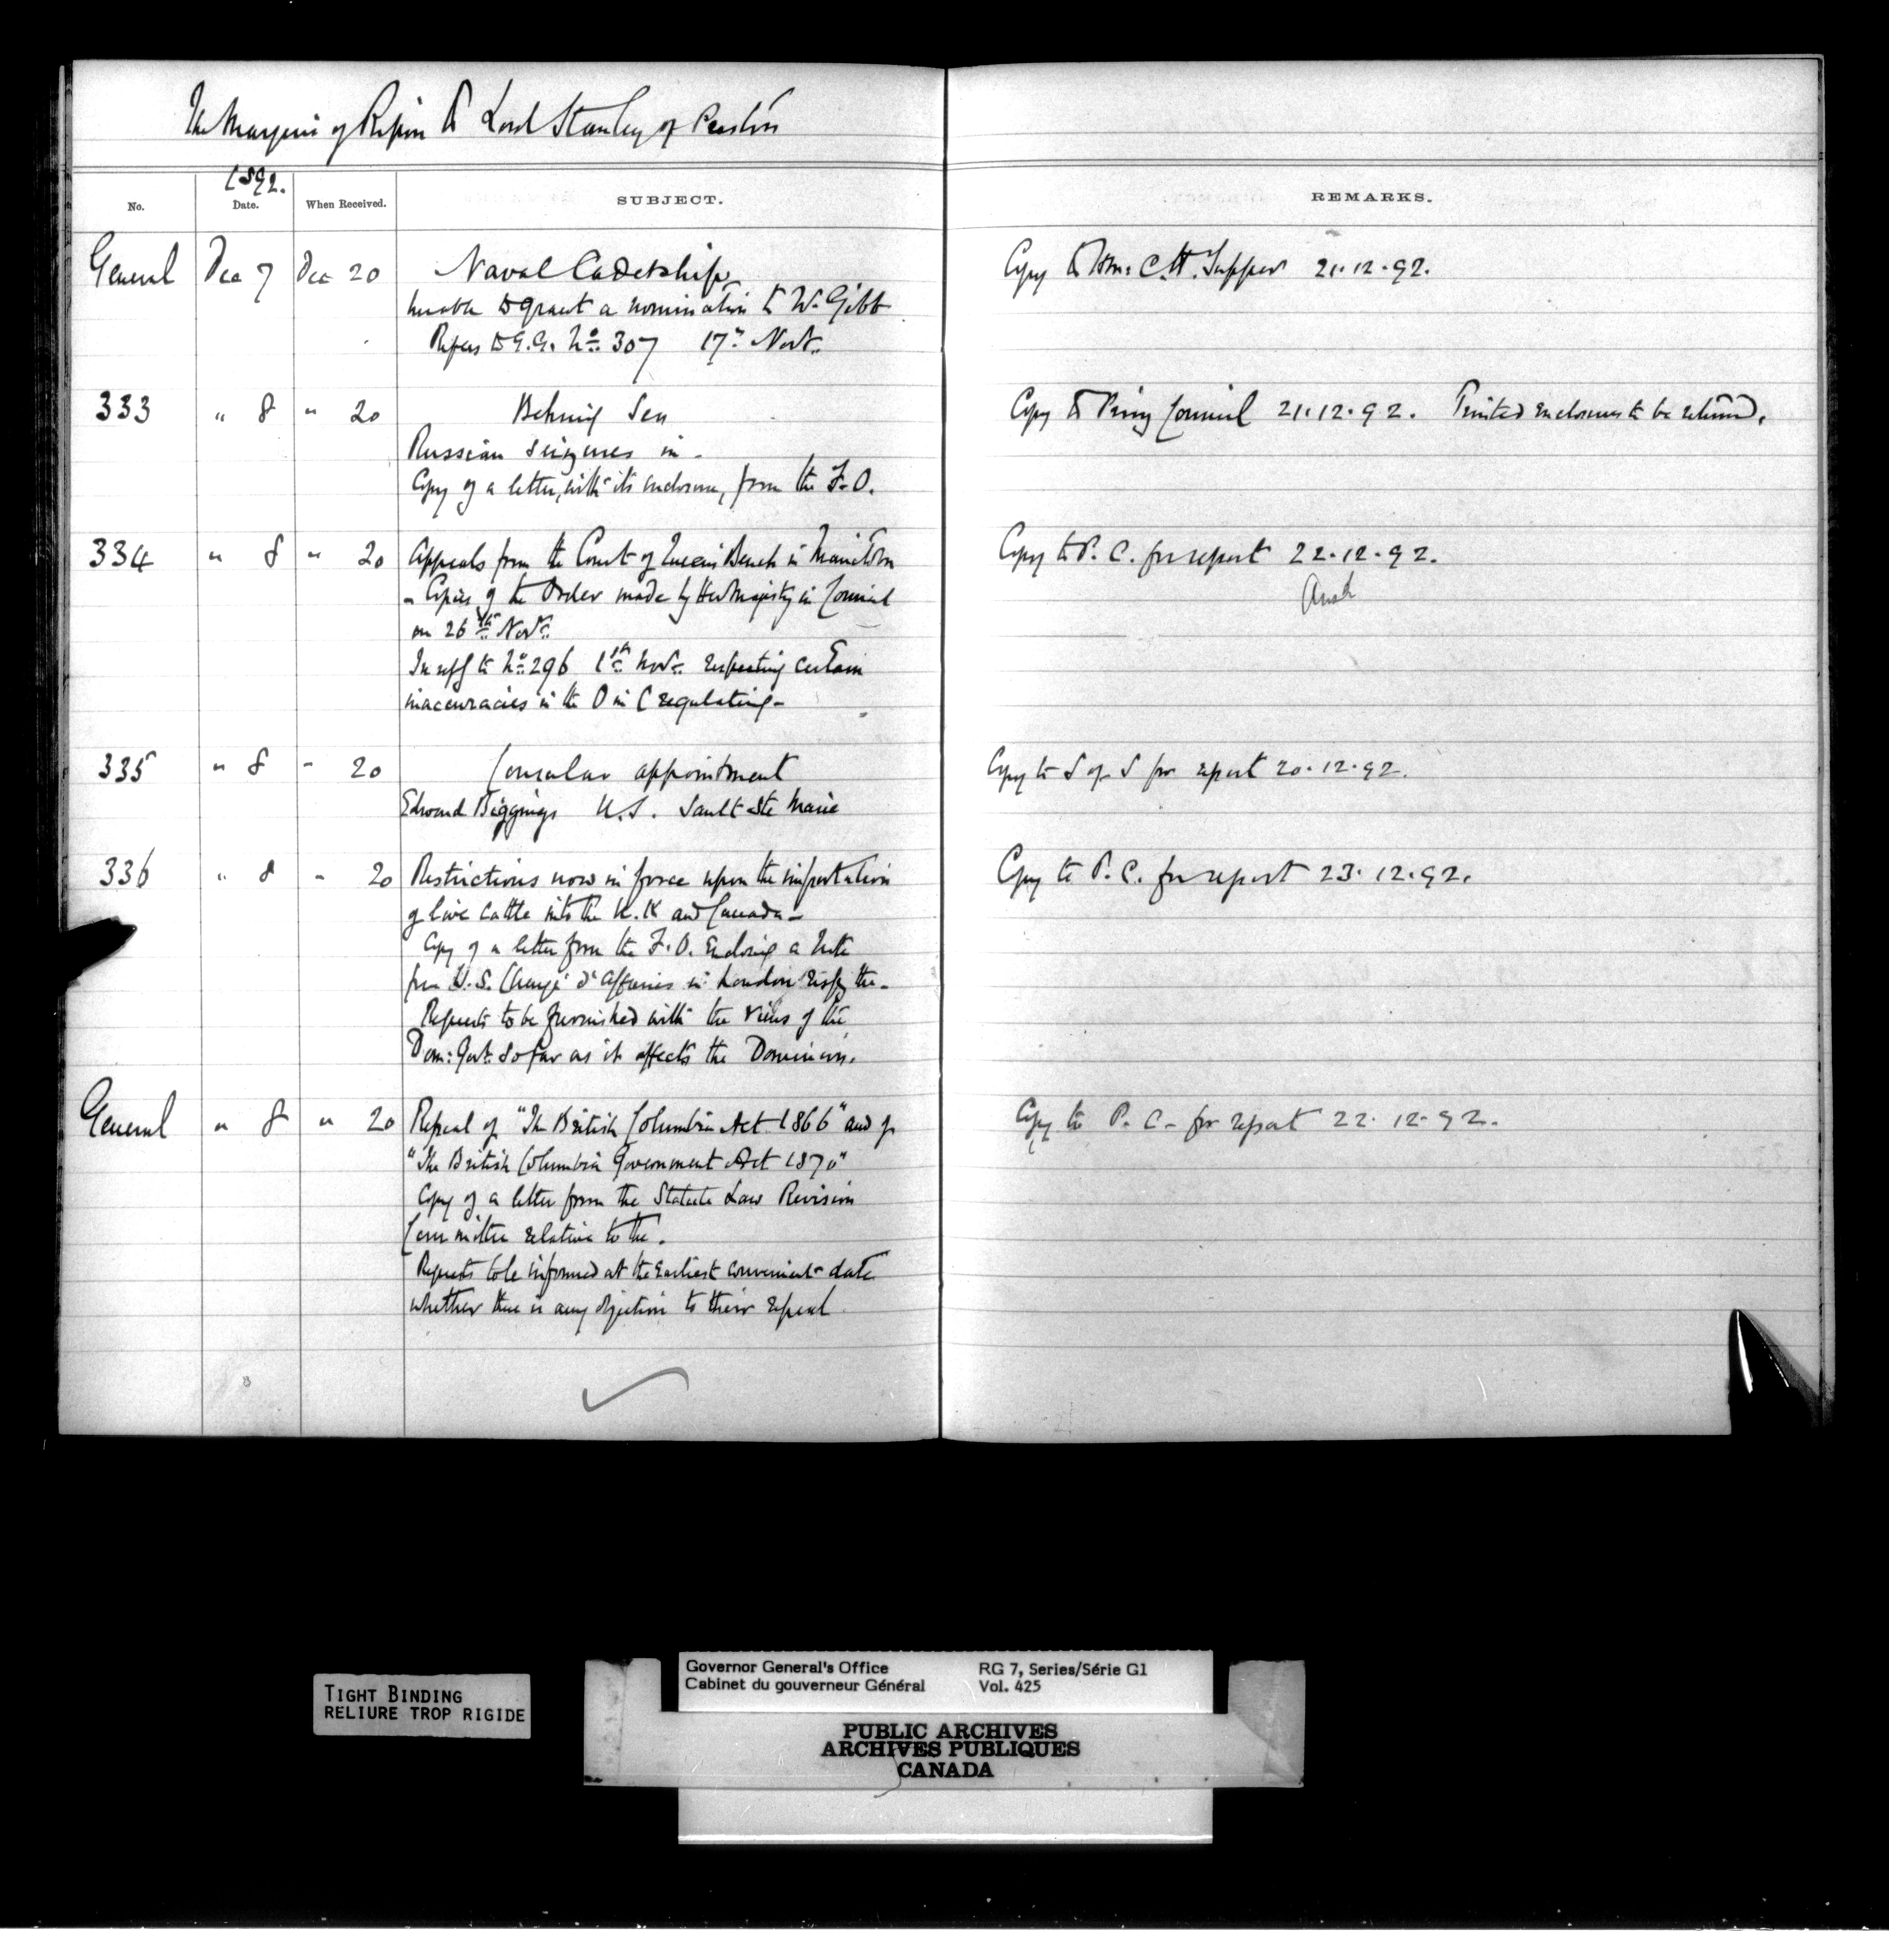 The Marquis of Ripon to Lord Stanley of Preston
1892.
No. Date. When Received. SUBJECT. REMARKS.
General Dec 7 Dec 20 Naval Cadetship Copy to Hon: C. H. Tupper 21.12.92.
Unable to grant a nomination to W. Gibb
Refers to G.G. No. 307 17th Novr.
333 " 8 " 20 Behring Sea Copy to Privy Council 21.12.92. Printed enclosures to be returned.
Russian Seizures in -
Copy of a letter, with its enclosure, from the F.O.
334 " 8 " 20 Appeals from the Court of Queens Bench in Manitoba Copy to P. C. for report 22.12.92.
- Copies of the Order made by Her Majesty in Council
on 26th Novr.
In refce to No. 296 1st Novr. respecting certain
inaccuracies in the O in C regulating -
335 " 8 " 20 Consular appointment Copy to S of S for report 20.12.92.
Edward Biggings U.S. Sault Ste Marie
336 " 8 " 20 Restrictions now in force upon the importation Copy to P. C. for report 23.12.92.
of live cattle into the U.K and Canada -
Copy of a letter from the F.O. enclosing a Note
from U.S. Chargé d'Affaires in London respg the -
Requests to be furnished with the views of the
Dom: Govt. so far as it affects the Dominion.
General " 8 " 20 Repeal of "The British Columbia Act 1866" and of Copy to P. C. for report 22.12.92.
"The British Columbia Government Act 1870"
Copy of a letter from the Statute Law Revision
Committee relative to the.
Requests to be informed at the earliest convenient date
whether there is any objection to their repeal
TIGHT BINDING
RELIURE TROP RIGIDE
Governor General's Office RG 7, Series/Série G1
Cabinet du gouverneur Général Vol. 425
PUBLIC ARCHIVES
ARCHIVES PUBLIQUES
CANADA